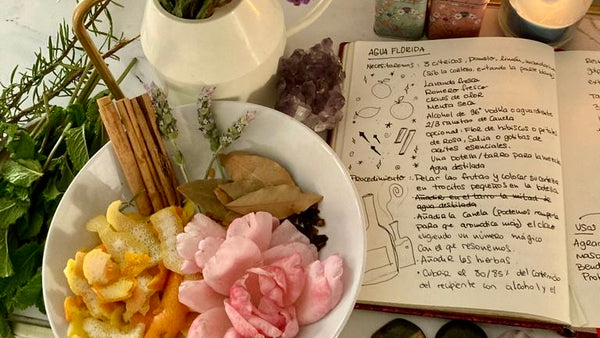 AGUA FLORIDA
Necesitaremos: 3 cítricos, pomelo, limón, mandarina
(Sólo la corteza, evitando la parte blanca)
Lavanda fresca
Romero fresco
Clavos de olor
Menta seca
Alcohol de 96° vodka o aguardiente
2/3 ramitas de Canela
opcional: Flor de hibiscos o pétalos
de Rosa, Salvia o gotitas de
aceites esenciales.
Una botella/tarro para la mezcla
Agua destilada
Procedimiento: Pelar las frutas y colocar su corteza
en trocitos pequeños en la botella
Añadir en el tarro la mitad de
agua destilada
· Añadir la Canela (podemos
para que aromatice más) el clavo
eligiendo un número mágico
con el que resonemos.
· Añadir las hierbas
· Cubrir el 80/85% del contenido
del recipiente con alcohol y el
USOS
Agrar